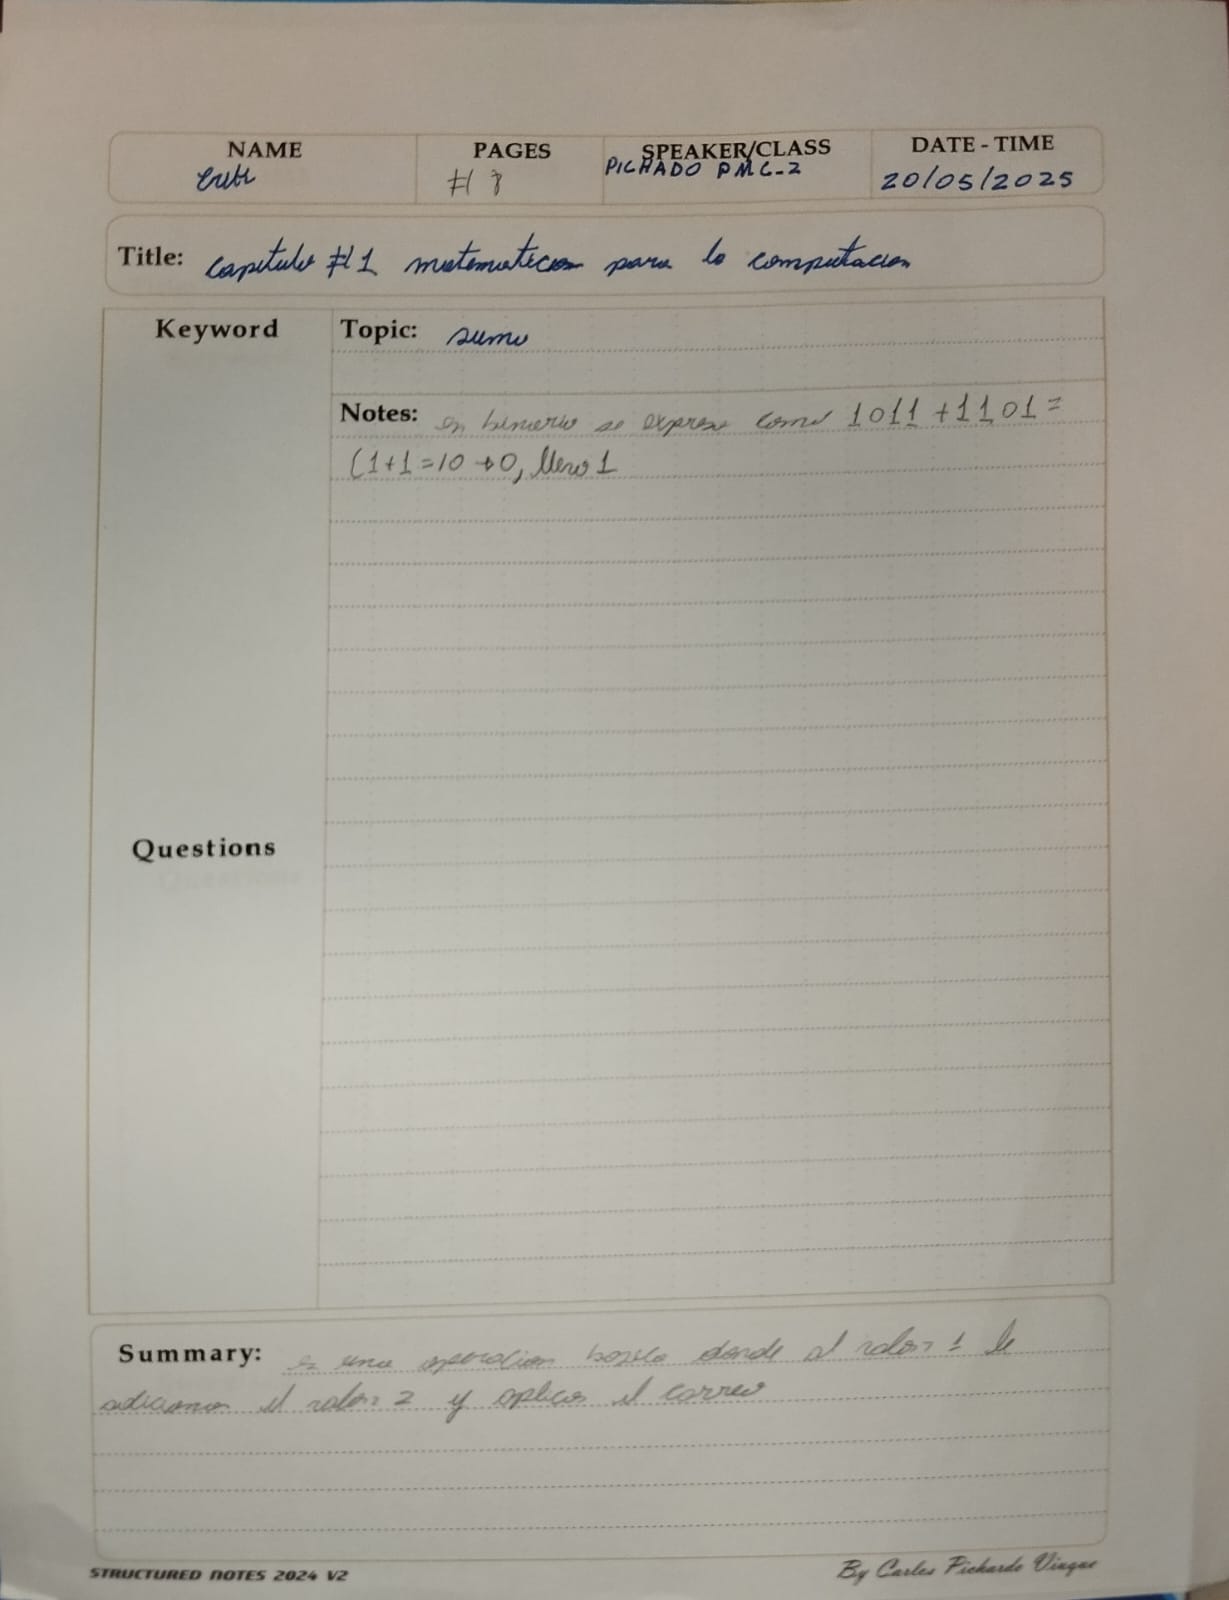 NAME PAGES SPEAKER/CLASS DATE - TIME
#1 PICHADO PMC-2 20/05/2025
Title: capitulo #1 matematicas para la computacion
Keyword Topic: suma
Notes: en binario se expresa como 1011 + 1101 =
(1+1=10 → 0, llevo 1
Questions
Summary: es una operacion basica donde al valor 1 le
adicionas el valor 2 y aplicas el carreo
STRUCTURED NOTES 2024 V2 By Carlos Pichardo Viuque